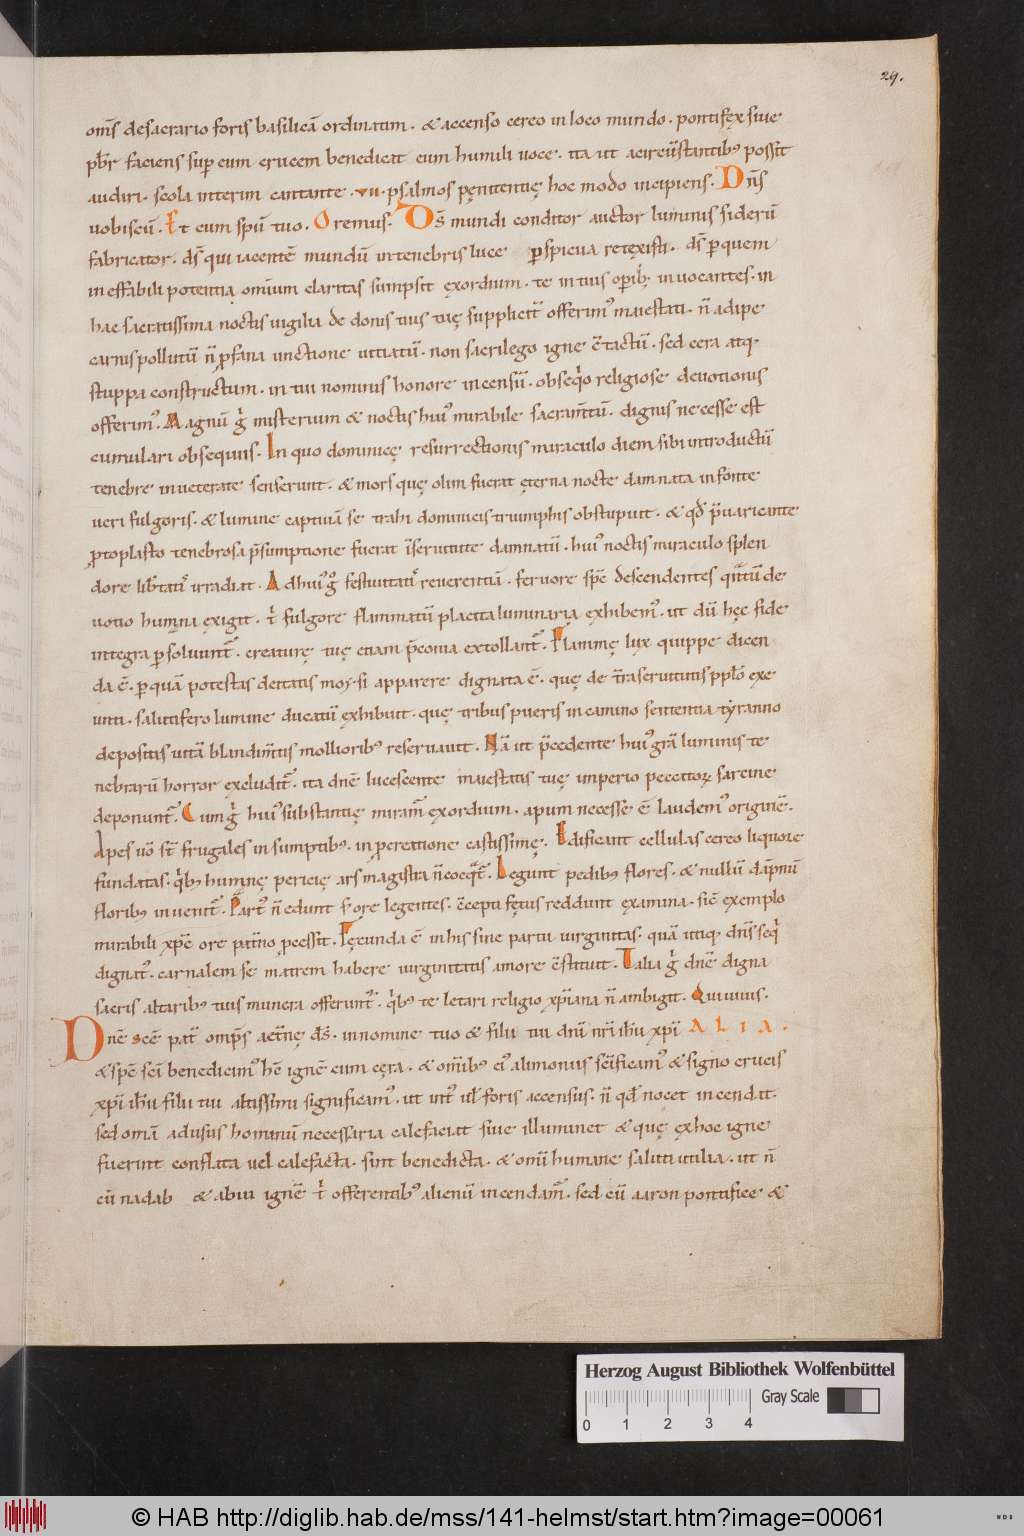 29.
om̄s desacrario foris basilicā ordinatim. & accenso cereo in loco mundo. pontifęx siue
pb̄r faciens sup eum crucem benedicat eum humili uoce. ita ut acircūstantibꝰ possit
audiri. scola interim cantante .vii. psalmos pęnitentię hoc modo incipiens. Dn̄s
uobiscū. Et cum spū tuo. Oremus. Ds̄ mundi conditor auctor luminis siderū
fabricator. ds̄ qui iacentē mundū intenebris luce perspicua retęxisti. ds̄ p quem
ineffabili potentia omnium claritas sumpsit ęxordium. te intuis opib; inuocantes. in
hac sacratissima noctis uigilia de donis tuis tuę suppliciť offerimꝰ maiestati. n̄ adipe
carnis pollutū n̄ pfana unctione uitiatū. non sacrilego igne c̄tactū. sed cera atq;
stuppa constructum. in tui nominis honore incensū. obseqͥo religiose deuotionis
offerimꝰ. Magnū gͥ misterium & noctis huiꝰ mirabile sacram̄tū. dignis necesse est
cumulari obsequiis. In quo dominicę resurrectionis miraculo diem sibi introductū
tenebre inueterate senserunt. & mors quę olim fuerat ęterna nocte damnata infonte
ueri fulgoris. & lumine captiuā se trahi dominicis triumphis obstupuit. & qd̄ p̄uaricante
ptoplasto tenebrosa p̄sumptione fuerat īseruitute damnatū. huiꝰ noctis miraculo splen
dore lib̄tatis irradiat. Ad huiꝰ gͦ festiuitatis reuerentiā. feruore spc̄ descendentes q̄ntū de
uotio humana ęxigit. tͥ fulgore flammatū placita luminaria ęxhibemꝰ. ut dū hęc fide
integra psoluunt̃. creaturę tuę etiam p̄conia extollant̃. Flammę lux quippe dicen
da ē. p quā potestas deitatis moysi apparere dignata ē. quę de t̄ra seruitutis pplo exe
unti. salutifero lumine ducatū ęxhibuit. quę tribus pueris in camino sententia tyranno
depositis uitā blandim̄tis mollioribꝰ reseruauit. Nā ut p̄cedente huiꝰ grā luminis te
nebrarū horror excludit̃. ita dnē lucescente maiestatis tuę imperio peccatoꝝ sarcine
deponunt̃. Cum gͥ huiꝰ substantię miram̃ exordium. apum necesse ē laudemꝰ originē.
Apes uō st̄ frugales in sumptibꝰ. in pcreatione castissimę. Edificant cellulas cereo liquore
fundatas. qͥbꝰ humanę pericię ars magistra n̄ coeqͣt̃. Legunt pedibꝰ flores. & nullū dāpnū
floribꝰ inuenit̃. Partꝰ n̄ edunt s; ore legentes. c̄cepti fętus reddunt examina. sic̄ exemplo
mirabili xp̄c ore pat̄no pcessit. Fęcunda ē in his sine partu uirginitas. quā utiq; dn̄s seqͥ
dignatꝰ. carnalem se matrem habere uirginitatis amore c̄stituit. Talia gͥ dnē digna
sacris altaribꝰ tuis munera offerunt̃. qͥbꝰ te letari religio xp̄iana n̄ ambigit. Qui uiuis.
Dnē scē pat̃ omps aet̄nę ds̄. in nomine tuo & filii tui dnī nr̄i ih̄u xp̄i ALIA.
& spc̄ scī benedicimꝰ hc̄ ignē cum cęra. & omībꝰ eiꝰ alimoniis scīficamꝰ & signo crucis
xp̄i ih̄u filii tui altissimi significamꝰ. ut int̃ ul̄ foris accensus. n̄ qd̄ nocet incendat.
sed omīa adusus hominū necessaria calefaciat siue illuminet & quę ęx hoc igne
fuerint conflata uel calefacta. sint benedicta. & omī humane saluti utilia. ut n̄
cū nadab & abiu ignē tͥ offerentibꝰ alienū incendam̃. sed cū aaron pontifice &
Herzog August Bibliothek Wolfenbüttel
Gray Scale
0 1 2 3 4
© HAB http://diglib.hab.de/mss/141-helmst/start.htm?image=00061